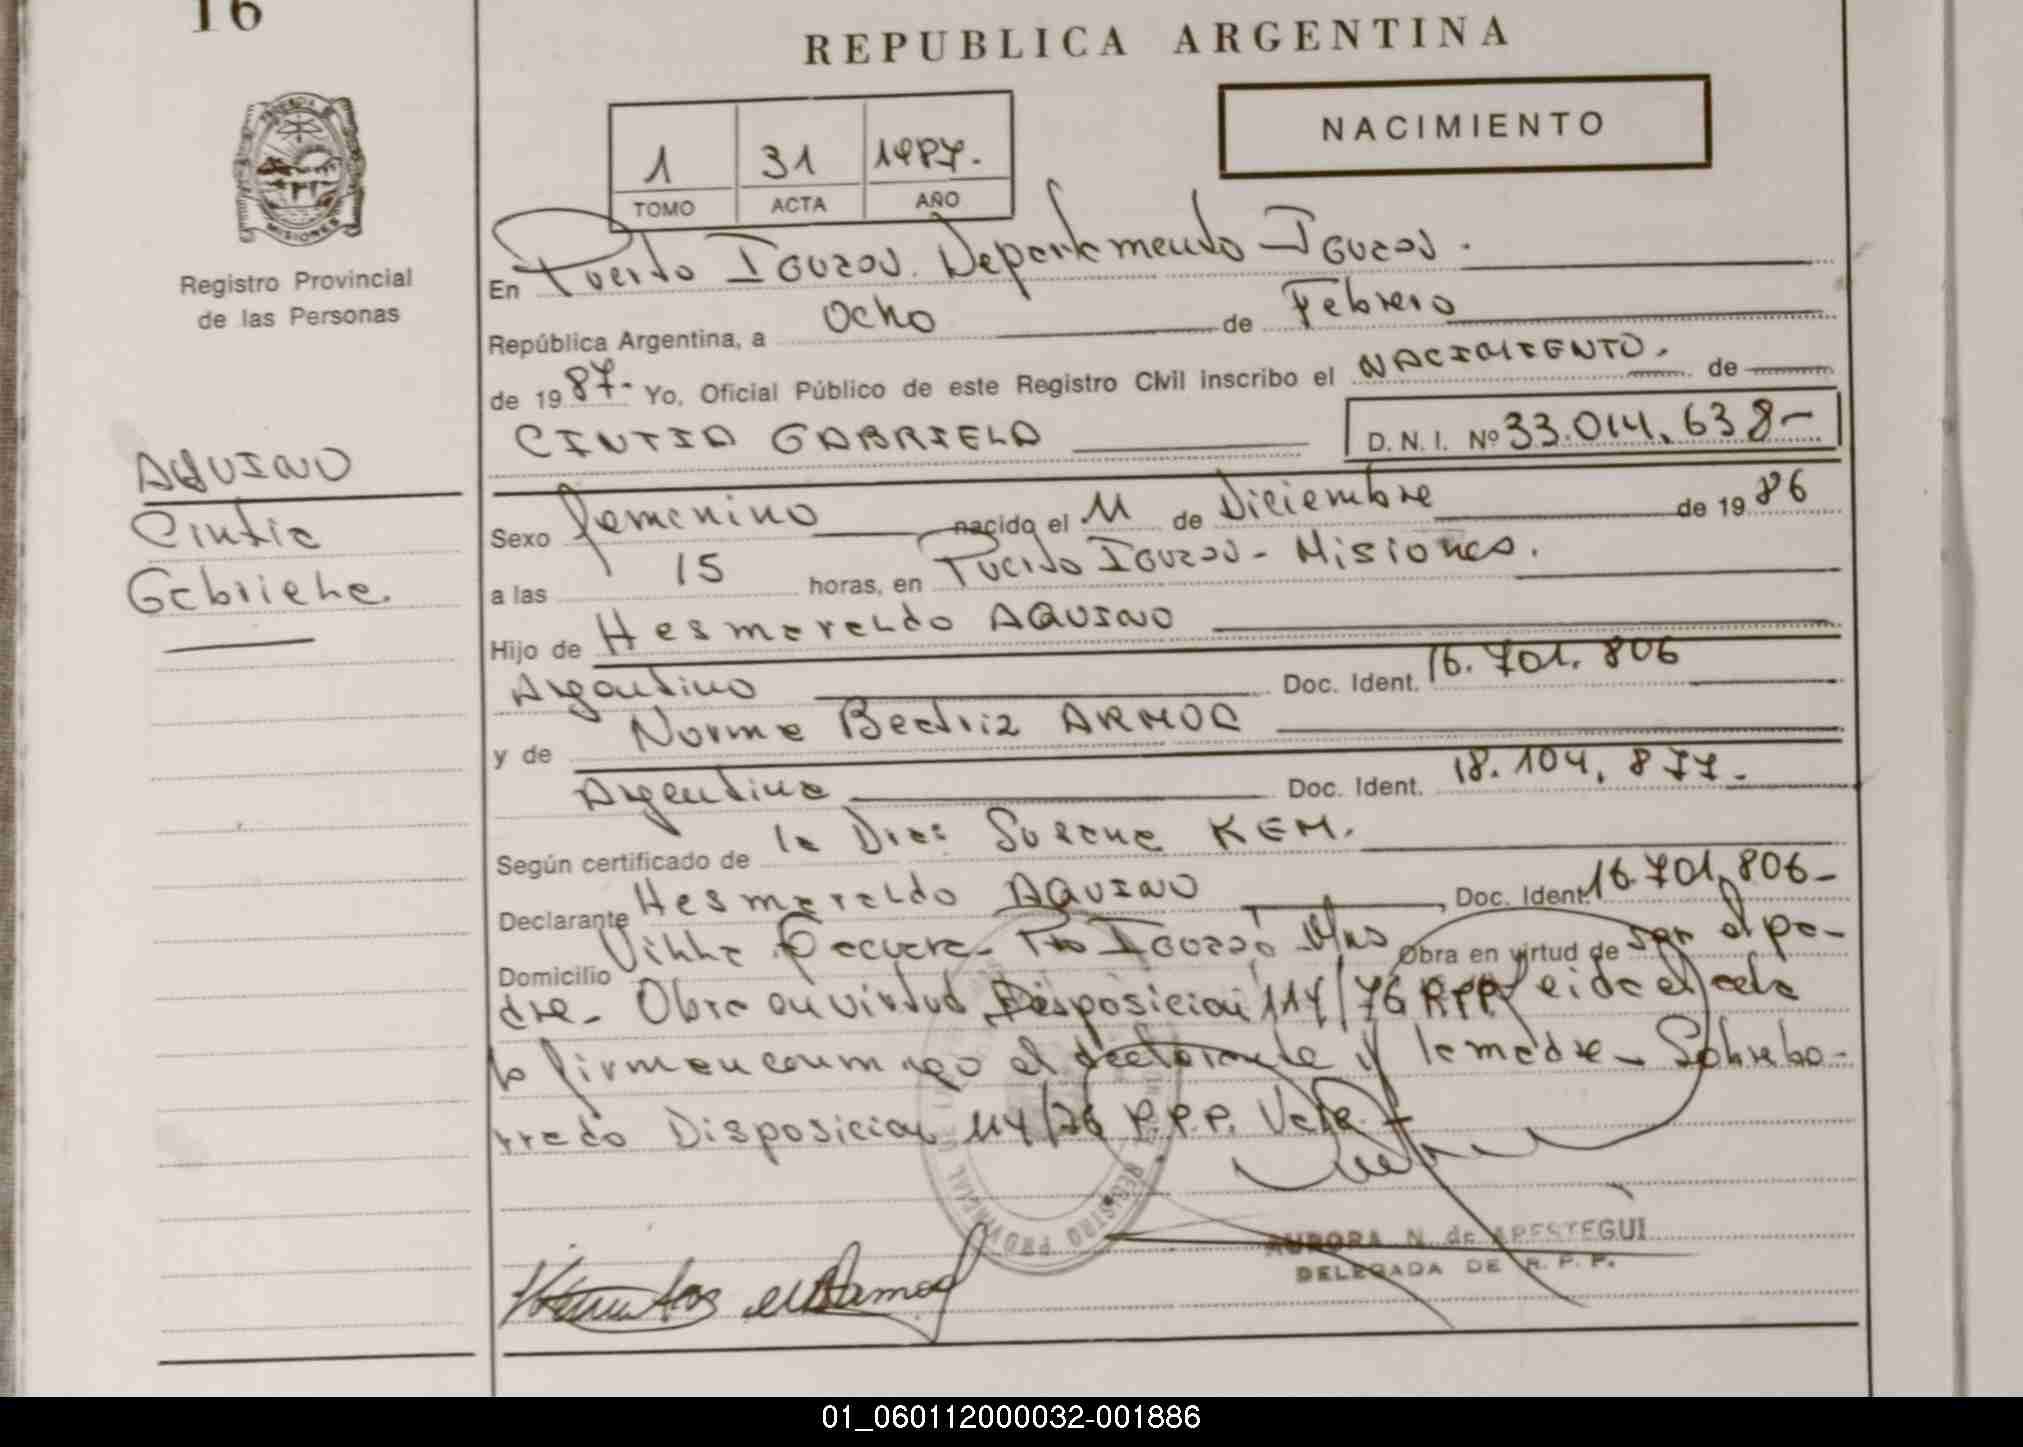 16
REPUBLICA ARGENTINA
NACIMIENTO
1 31 1987.
TOMO ACTA AÑO
PROVINCIA DE MISIONES
Registro Provincial
de las Personas
En Puerto Iguazú. Departamento Iguazú.
República Argentina, a Ocho de Febrero
de 1987. Yo, Oficial Público de este Registro Civil inscribo el NACIMIENTO. de
CINTIA GABRIELA D. N. I. Nº 33.014.638-
AQUINO
Cintia
Gabriela.
Sexo femenino nacido el 11 de Diciembre de 1986
a las 15 horas, en Puerto Iguazú - Misiones.
Hijo de Hesmeraldo AQUINO
Argentino Doc. Ident. 16.701.806
y de Norma Beatriz ARMOA
Argentina Doc. Ident. 18.104.877-
Según certificado de la Dra: Susana KEM.
Declarante Hesmeraldo AQUINO, Doc. Ident. 16.701.806-
Domicilio Villa - Pto Iguazú Mnes Obra en virtud de ser el pa-
dre - Obra en virtud Disposición 114/76 RPP Leida el acta
la firman conmigo el declarante y la madre - Sobrebo-
rrado Disposicion 114/76 R.P.P. Vale.
REGISTRO PROVINCIAL DE LAS
AURORA N. de APESTEGUI
DELEGADA DE R. P. P.
01_060112000032-001886